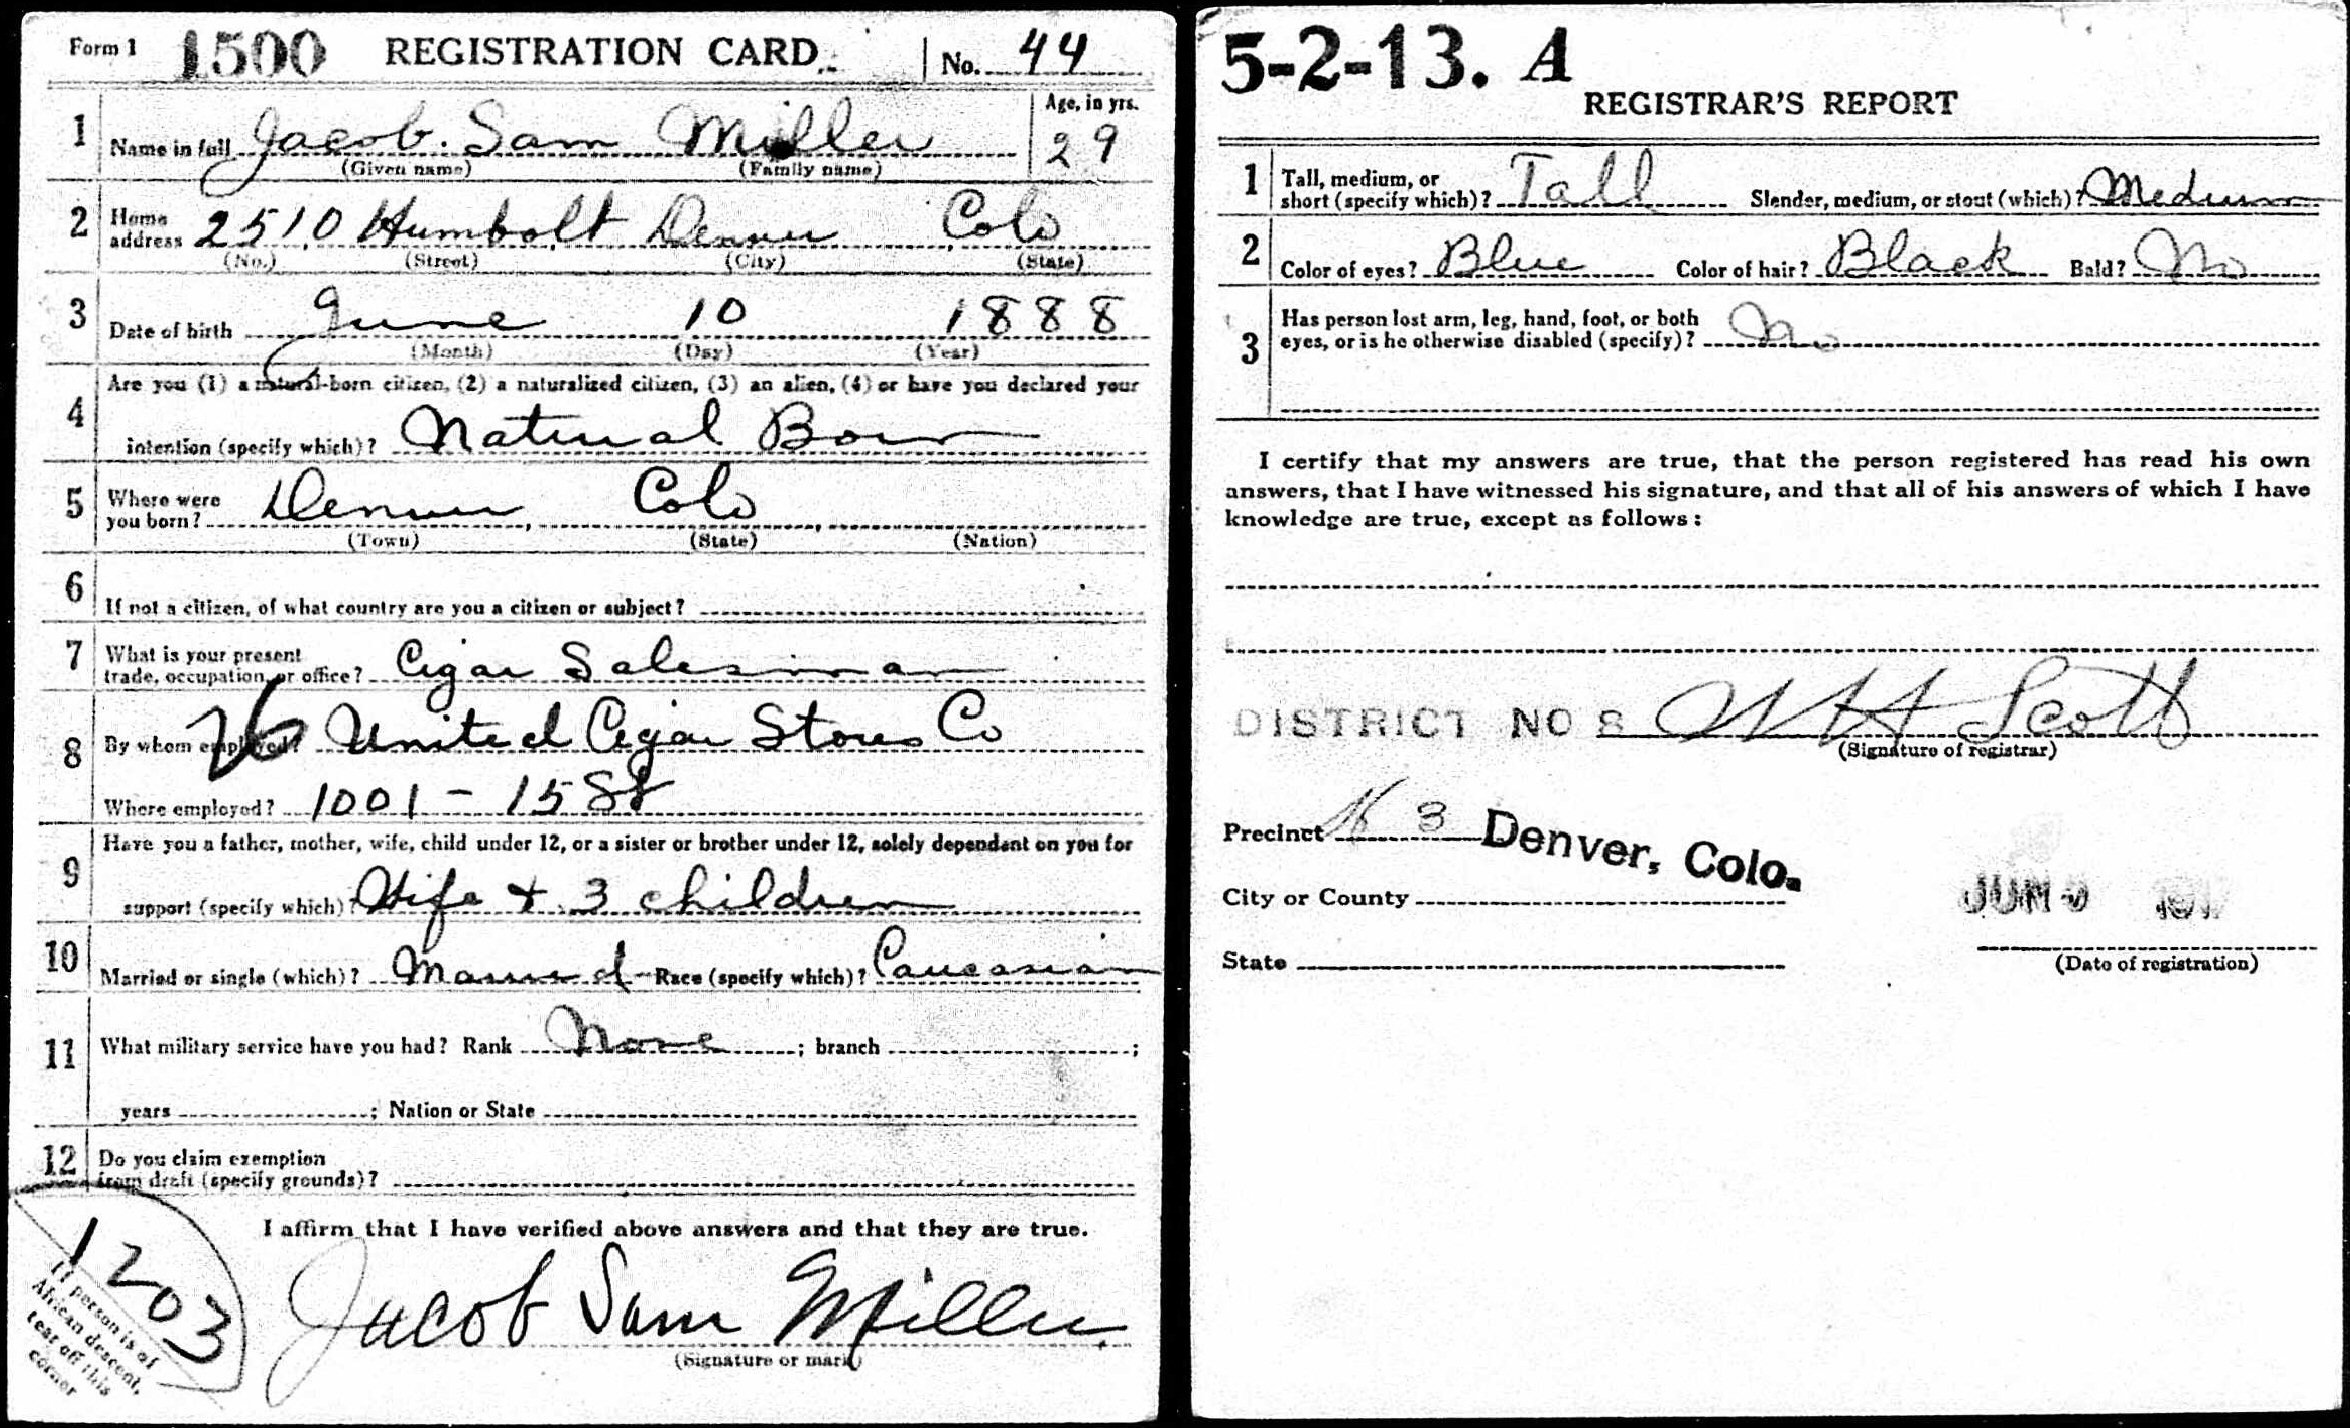 Form 1 1500 REGISTRATION CARD No. 44
1 Name in full Jacob. Sam Miller Age, in yrs. 29
(Given name) (Family name)
2 Home address 2510 Humbolt Denver Colo
(No.) (Street) (City) (State)
3 Date of birth June 10 1888
(Month) (Day) (Year)
4 Are you (1) a natural-born citizen, (2) a naturalized citizen, (3) an alien, (4) or have you declared your
intention (specify which)? Natural Born
5 Where were you born? Denver, Colo,
(Town) (State) (Nation)
6 If not a citizen, of what country are you a citizen or subject?
7 What is your present
trade, occupation, or office? Cigar Salesman
8 By whom employed? 26 United Cigar Stores Co
Where employed? 1001 - 15 St
9 Have you a father, mother, wife, child under 12, or a sister or brother under 12, solely dependent on you for
support (specify which)? Wife + 3 children
10 Married or single (which)? Married Race (specify which)? Caucasian
11 What military service have you had? Rank None ; branch ;
years ; Nation or State
12 Do you claim exemption
from draft (specify grounds)?
I affirm that I have verified above answers and that they are true.
1203
If person is of
African descent,
tear off this
corner
Jacob Sam Miller
(Signature or mark)
5-2-13. A
REGISTRAR'S REPORT
1 Tall, medium, or
short (specify which)? Tall Slender, medium, or stout (which)? Medium
2 Color of eyes? Blue Color of hair? Black Bald? No
3 Has person lost arm, leg, hand, foot, or both
eyes, or is he otherwise disabled (specify)? No
I certify that my answers are true, that the person registered has read his own
answers, that I have witnessed his signature, and that all of his answers of which I have
knowledge are true, except as follows:
DISTRICT NO 8 W H Scott
(Signature of registrar)
Precinct 3 Denver, Colo.
City or County JUN 1917
State
(Date of registration)